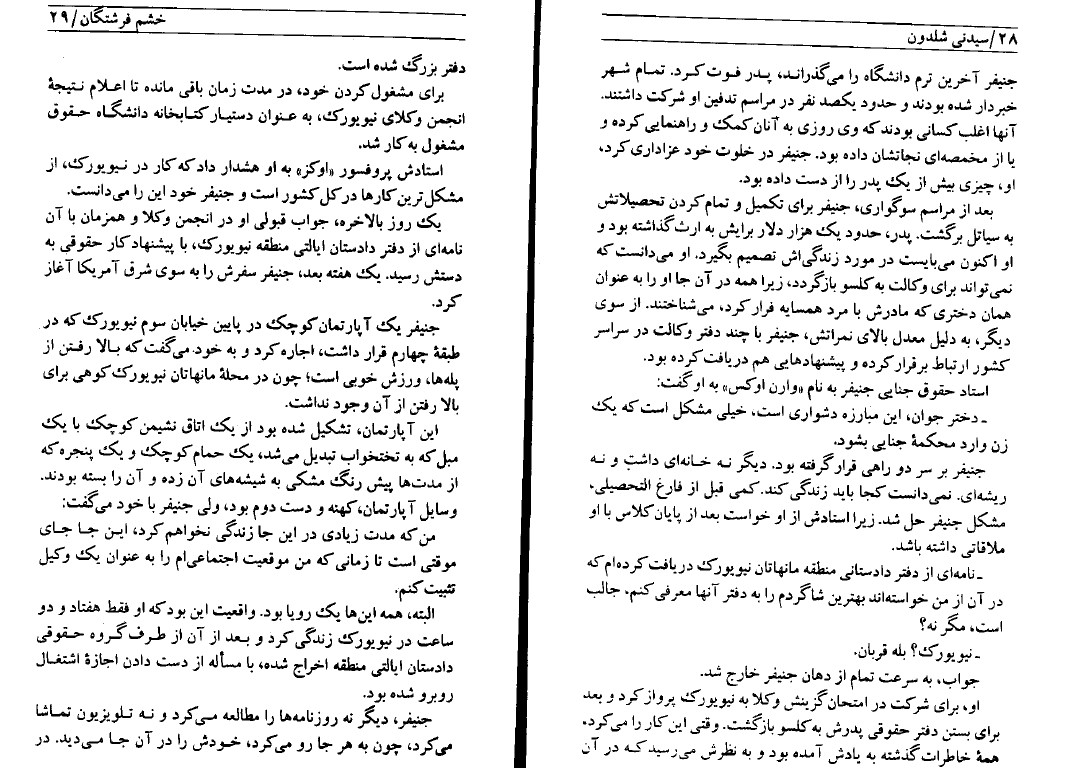 ۲۸/سیدنی شلدون
جنیفر آخرین ترم دانشگاه را می‌گذرانـد، پـدر فـوت کـرد. تمـام شهر
خبردار شده بودند و حدود یکصد نفر در مراسم تدفین او شرکت داشتند.
آنها اغلب کسانی بودند که وی روزی به آنان کمک و راهنمایی کرده و
یا از مخمصه‌ای نجاتشان داده بود. جنیفر در خلوت خود عزاداری کرد،
او، چیزی بیش از یک پدر را از دست داده بود.
بعد از مراسم سوگواری، جنیفر برای تکمیل و تمام کردن تحصیلاتش
به سیاتل برگشت. پدر، حدود یک هزار دلار برایش به ارث گذاشته بود و
او اکنون می‌بایست در مورد زندگی‌اش تصمیم بگیرد. او می‌دانست که
نمی‌تواند برای وکالت به کلسو بازگردد، زیرا همه در آن جا او را به عنوان
همان دختری که مادرش با مرد همسایه فرار کرد، می‌شناختند. از سوی
دیگر، به دلیل معدل بالای نمراتش، جنیفر با چند دفتر وکالت در سراسر
کشور ارتباط برقرار کرده و پیشنهادهایی هم دریافت کرده بود.
استاد حقوق جنایی جنیفر به نام «وارن اوکس» به او گفت:
ـ دختر جوان، این مبارزه دشواری است، خیلی مشکل است که یک
زن وارد محکمهٔ جنایی بشود.
جنیفر بر سر دو راهی قرار گرفته بود. دیگر نـه خـانه‌ای داشت و نـه
ریشه‌ای. نمی‌دانست کجا باید زندگی کند. کمی قبل از فارغ التحصیلی،
مشکل جنیفر حل شد. زیرا استادش از او خواست بعد از پایان کلاس با او
ملاقاتی داشته باشد.
ـ نامه‌ای از دفتر دادستانی منطقه مانهاتان نیویورک دریافت کرده‌ام که
در آن از من خواسته‌اند بهترین شاگردم را به دفتر آنها معرفی کنم، جالب
است، مگر نه؟
ـ نیویورک؟ بله قربان.
جواب، به سرعت تمام از دهان جنیفر خارج شد.
او، برای شرکت در امتحان گزینش وکلا به نیویورک پرواز کرد و بعد
برای بستن دفتر حقوقی پدرش به کلسو بازگشت. وقتی این کار را می‌کرد،
همهٔ خاطرات گذشته به یادش آمده بود و به نظرش می‌رسید کـه در آن
خشم فرشتگان/۲۹
دفتر بزرگ شده است.
برای مشغول کردن خود، در مدت زمان باقی مانده تا اعلام نـتیجهٔ
انجمن وکلای نیویورک، به عنوان دستیار کتابخانه دانشگاه حـقوق
مشغول به کار شد.
استادش پروفسور «اوکز» به او هشدار داد که کار در نیویورک، از
مشکل ترین کارها در کل کشور است و جنیفر خود این را می‌دانست.
یک روز بالاخره، جواب قبولی او در انجمن وکلا و همزمان با آن
نامه‌ای از دفتر دادستان ایالتی منطقه نیویورک، با پیشنهاد کار حقوقی به
دستش رسید. یک هفته بعد، جنیفر سفرش را به سوی شرق آمریکا آغاز
کرد.
جنیفر یک آپارتمان کوچک در پایین خیابان سوم نیویورک که در
طبقهٔ چهارم قرار داشت، اجاره کرد و به خود می‌گفت که بـالا رفـتن از
پله‌ها، ورزش خوبی است؛ چون در محلهٔ مانهاتان نیویورک کوهی برای
بالا رفتن از آن وجود نداشت.
این آپارتمان، تشکیل شده بود از یک اتاق نشیمن کوچک با یک
مبل که به تختخواب تبدیل می‌شد، یک حمام کوچک و یک پنجره که
از مدت‌ها پیش رنگ مشکی به شیشه‌های آن زده و آن را بسته بودند.
وسایل آپارتمان، کهنه و دست دوم بود، ولی جنیفر با خود می‌گفت:
من که مدت زیادی در این جا زندگی نخواهم کرد، ایـن جـا جـای
موقتی است تا زمانی که من موقعیت اجتماعی‌ام را به عنوان یک وکیل
تثبیت کنم.
البته، همه این‌ها یک رویا بود. واقعیت این بود که او فقط هفتاد و دو
ساعت در نیویورک زندگی کرد و بـعـد از آن از طـرف گـروه حـقوقی
دادستان ایالتی منطقه اخراج شده، با مسأله از دست دادن اجازهٔ اشتغال
روبرو شده بود.
جنیفر، دیگر نه روزنامه‌ها را مطالعه مـی‌کرد و نـه تـلویزیون تمـاشا
می‌کرد، چون به هر جا رو می‌کرد، خـودش را در آن جـا مـی‌دید. در